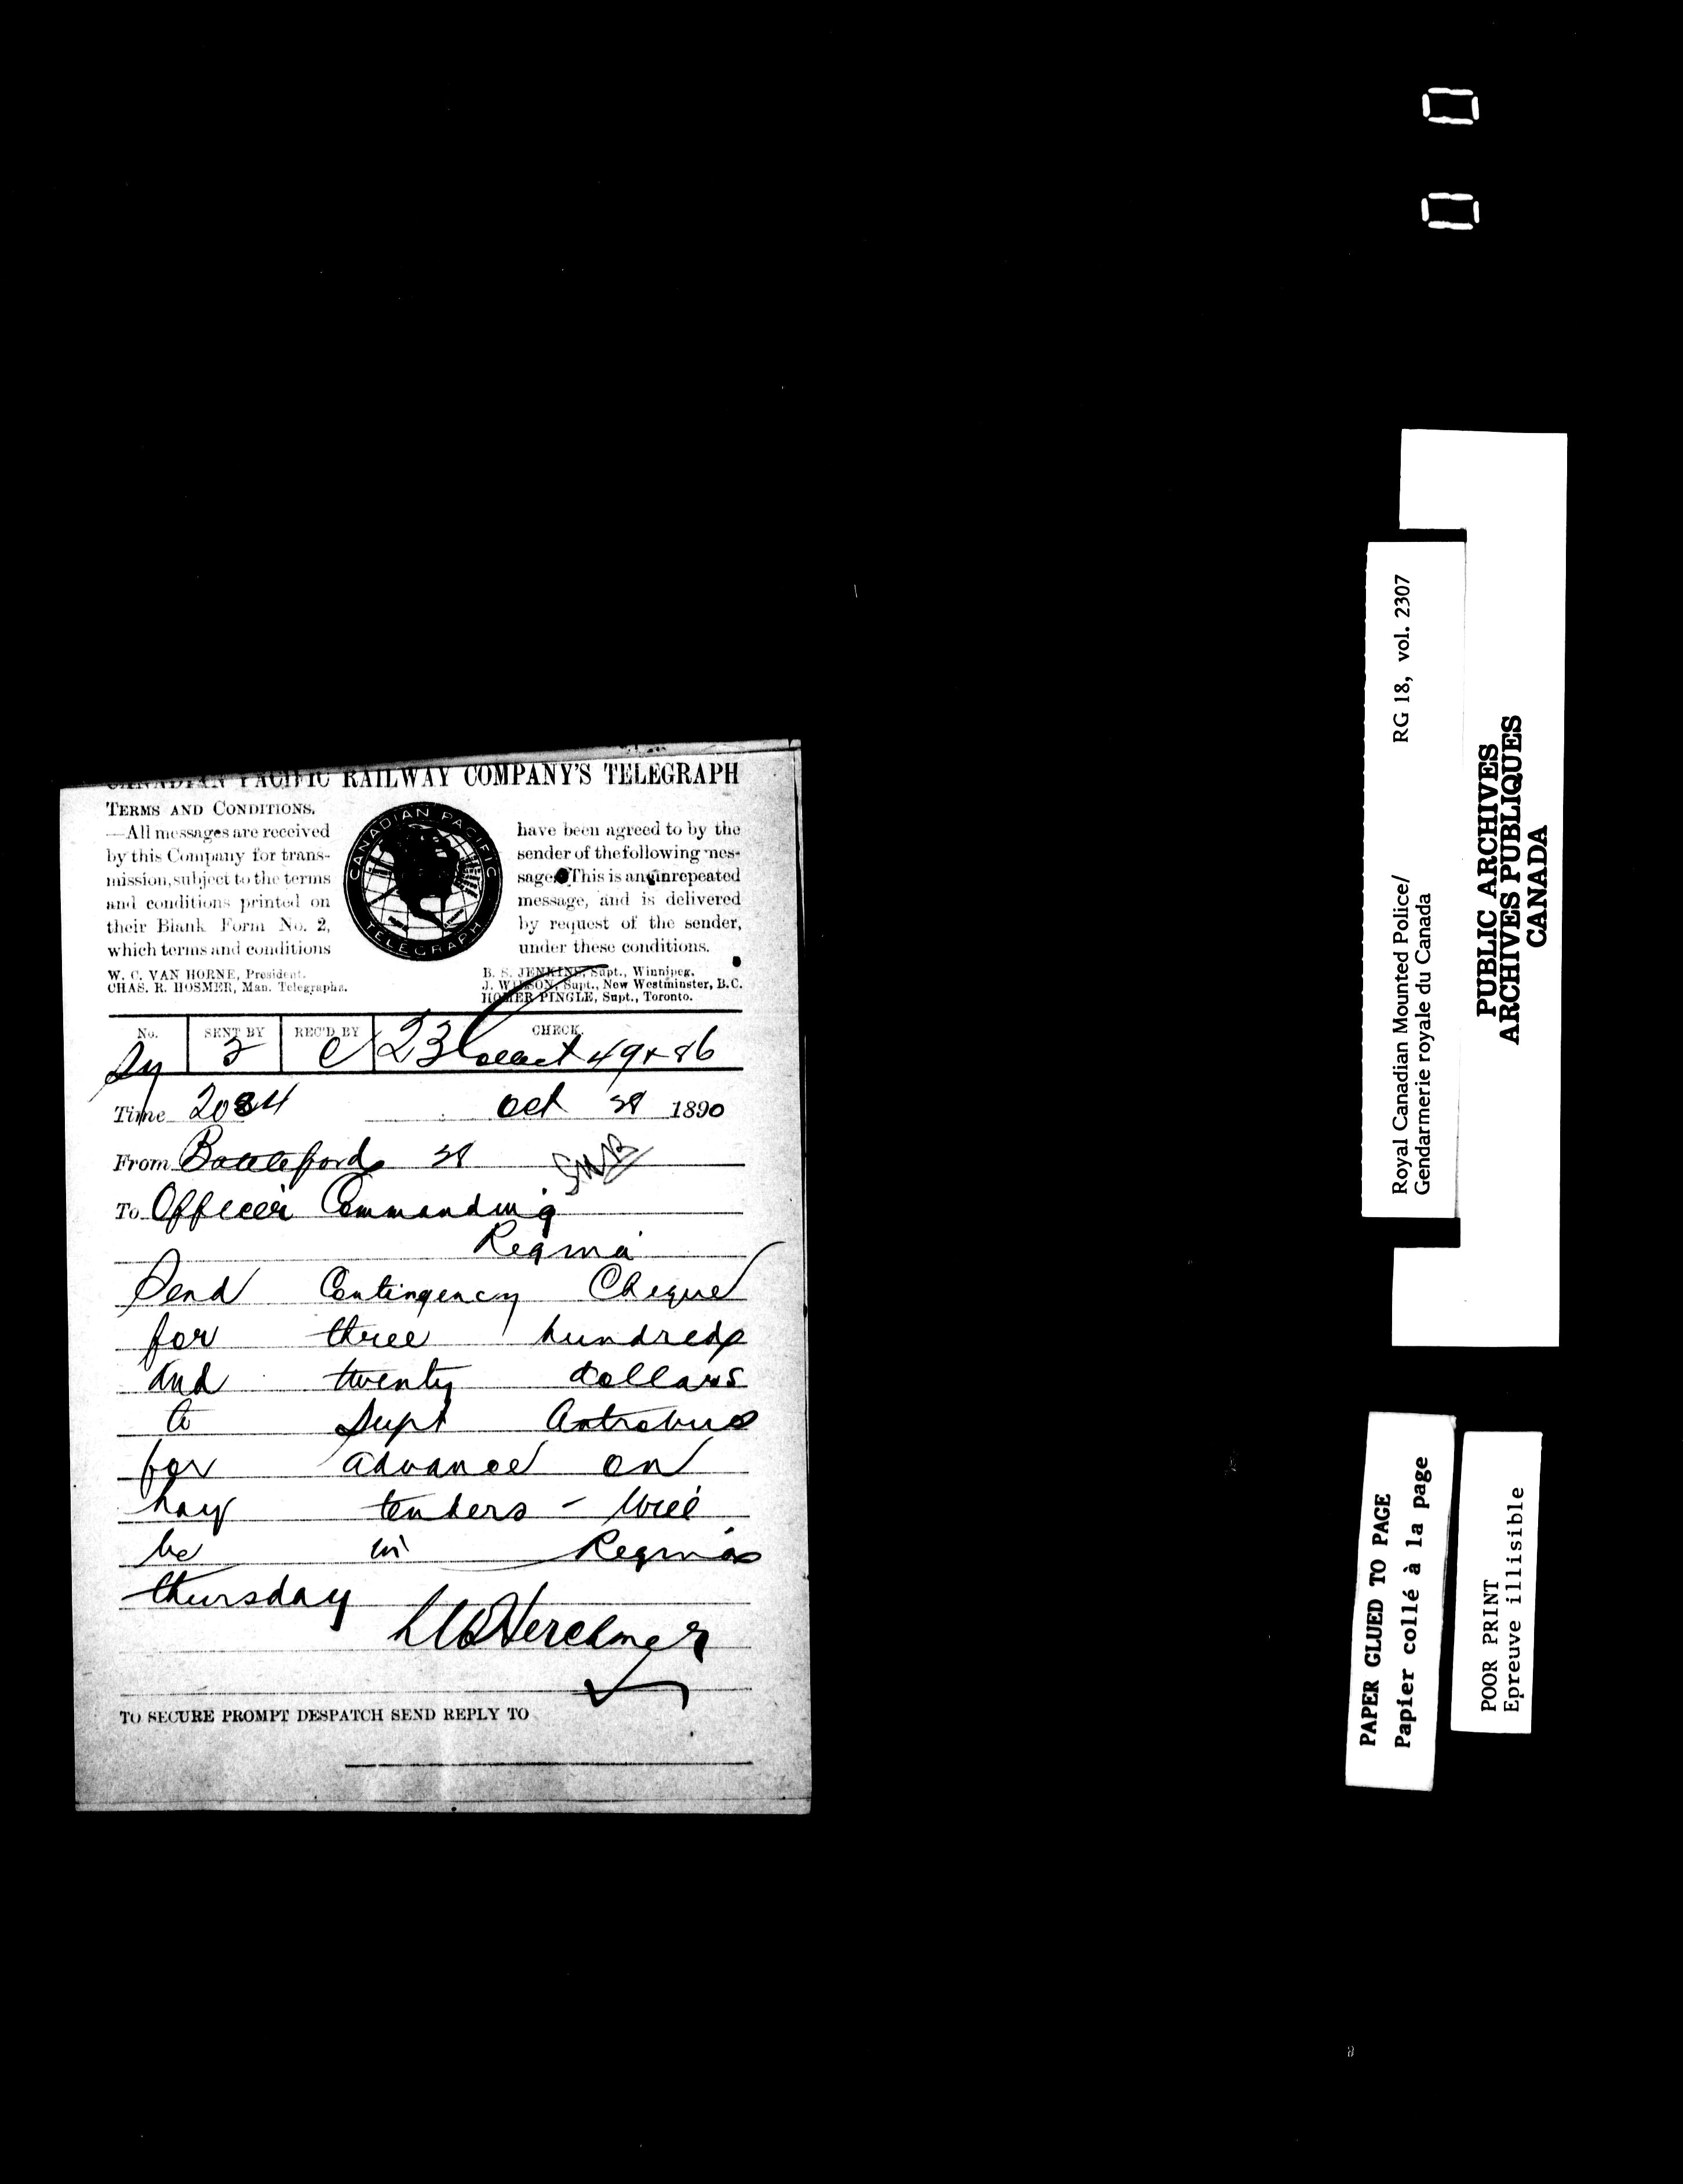 CANADIAN PACIFIC RAILWAY COMPANY'S TELEGRAPH
TERMS AND CONDITIONS.
—All messages are received
by this Company for trans-
mission, subject to the terms
and conditions printed on
their Blank Form No. 2,
which terms and conditions
CANADIAN PACIFIC
TELEGRAPH
have been agreed to by the
sender of the following mes-
sage. This is an unrepeated
message, and is delivered
by request of the sender,
under these conditions.
W. C. VAN HORNE, President.
CHAS. R. HOSMER, Man. Telegraphs.
B. S. JENKINS, Supt., Winnipeg.
J. WILSON, Supt., New Westminster, B.C.
HOMER PINGLE, Supt., Toronto.
No. SENT BY REC'D BY CHECK.
23 Collect 49 + 86
Time Oct 28 1890
From Battleford 28
To Officer Commanding
Regina
Send Contingency Cheque
for three hundred
and twenty dollars
to Supt Antrobus
for advance on
hay tenders – Will
be in Regina
thursday
LWHerchmer
TO SECURE PROMPT DESPATCH SEND REPLY TO
Royal Canadian Mounted Police/ RG 18, vol. 2307
Gendarmerie royale du Canada
PUBLIC ARCHIVES
ARCHIVES PUBLIQUES
CANADA
PAPER GLUED TO PAGE
Papier collé à la page
POOR PRINT
Epreuve illisible